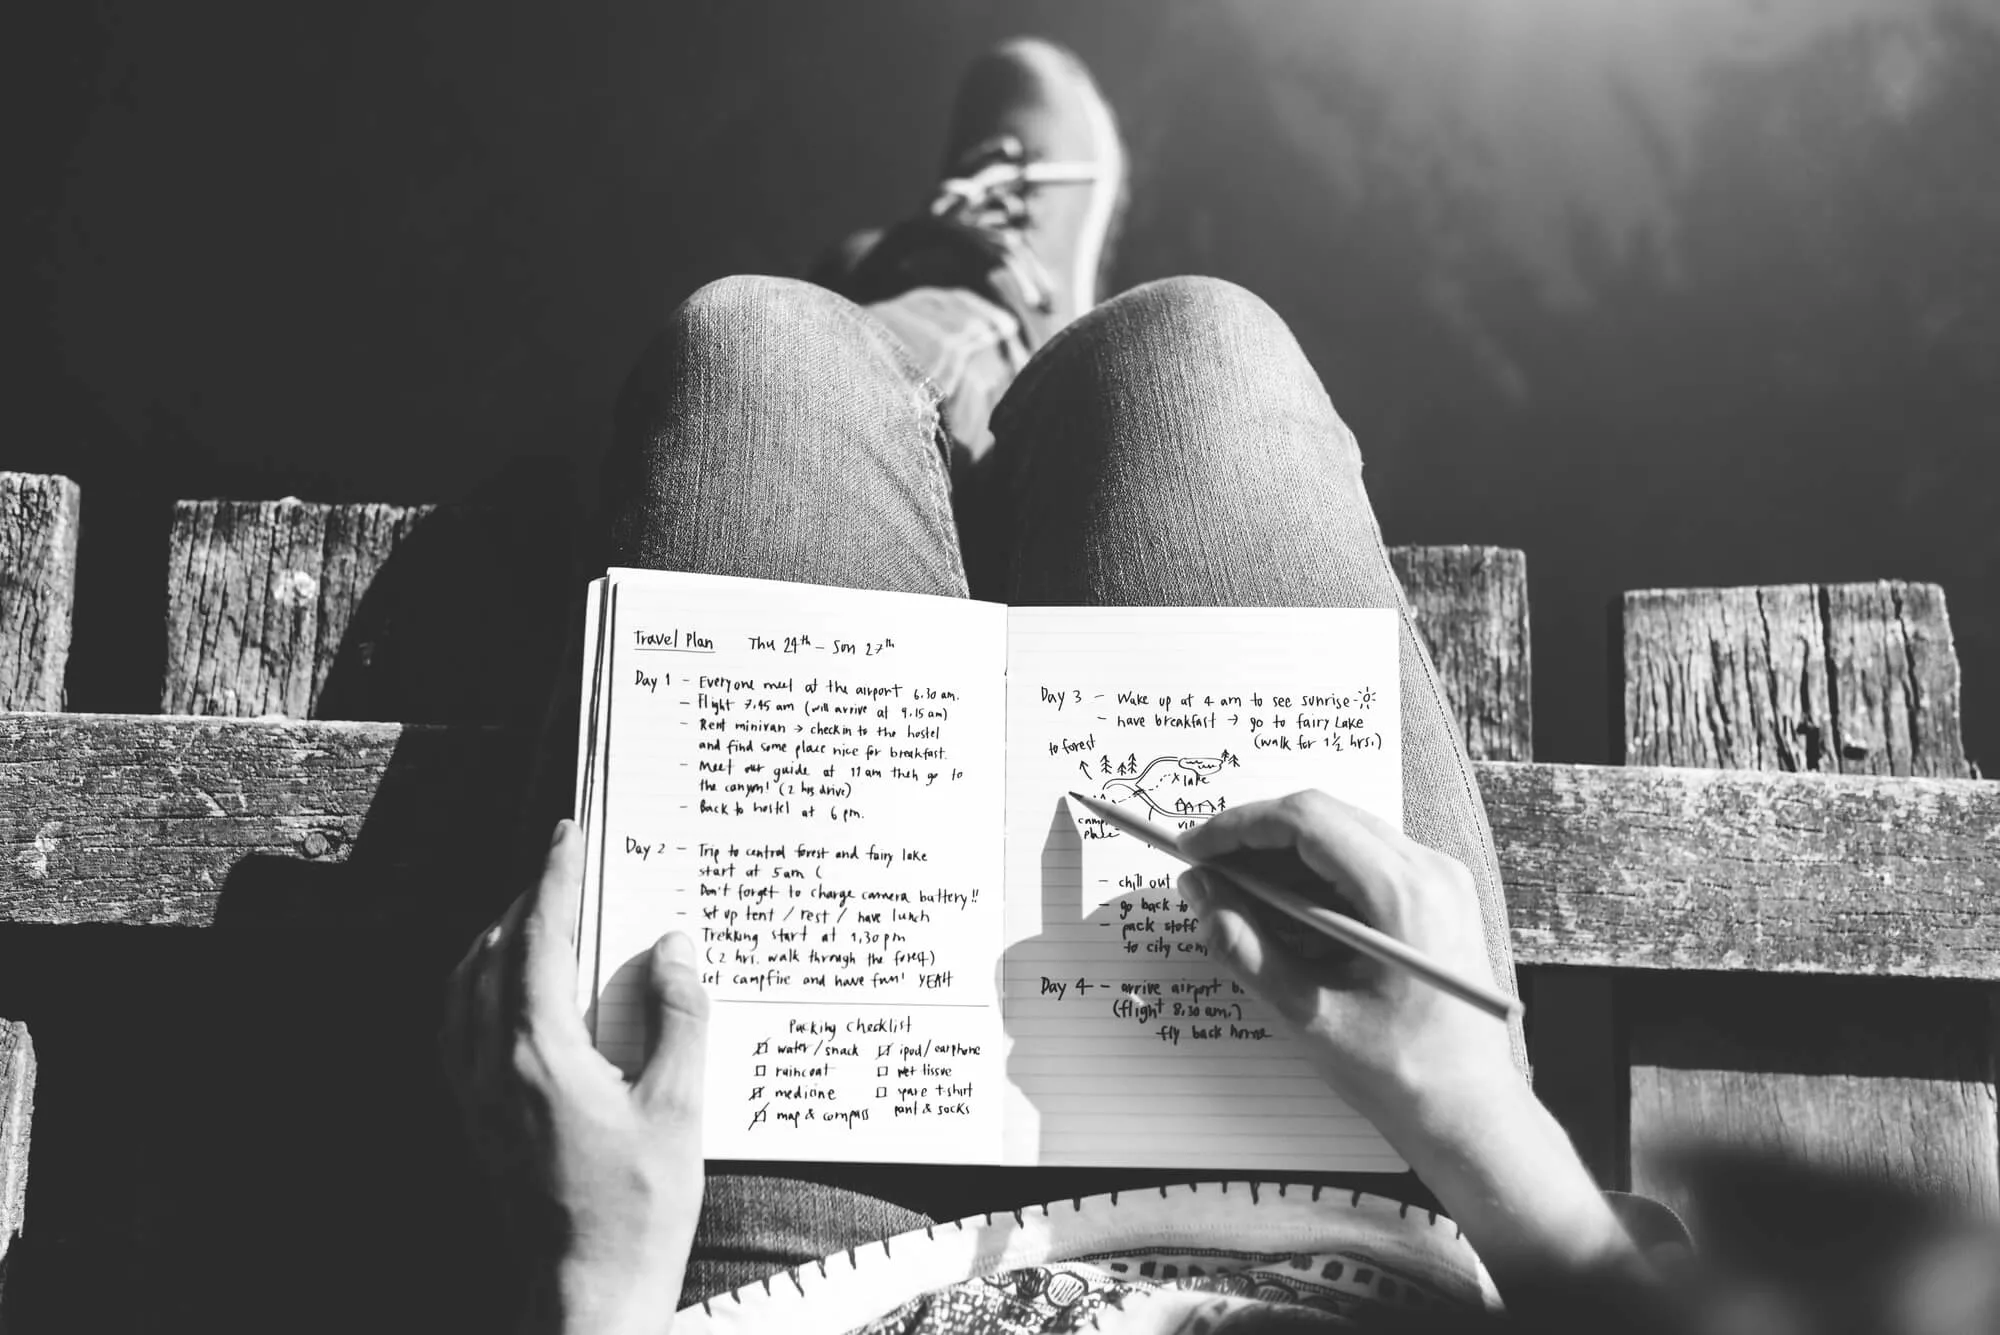 Travel Plan Thu 24th - Sun 27th
Day 1 - Everyone meet at the airport 6.30 am.
- Flight 7.45 am (will arrive at 9.15 am)
- Rent minivan → check in to the hostel
and find some place nice for breakfast.
- Meet our guide at 11 am then go to
the canyon! (2 hrs drive)
- Back to hostel at 6 pm.
Day 2 - Trip to central forest and fairy lake
start at 5 am (
- Don't forget to charge camera battery!!
- set up tent / rest / have lunch
Trekking start at 1.30 pm
(2 hrs. walk through the forest)
set campfire and have fun! YEAH
Packing checklist
water/snack
raincoat
medicine
map & compass
ipod/earphone
wet tissue
t-shirt
pant & socks
Day 3 - Wake up at 4 am to see sunrise
- have breakfast → go to fairy lake
(walk for 1 1/2 hrs.)
to forest
x lake
place
- chill out
- go back to
- pack stoff
to city
Day 4 - arrive airport
(flight 8.30 am.)
fly back home